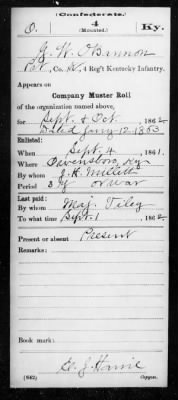 (Confederate.)
O. 4 Ky.
(Mounted.)
J. W. O'Bannon
Pvt., Co. K, 4 Reg't Kentucky Infantry.
Appears on
Company Muster Roll
of the organization named above,
for Sept. & Oct. 1862
Dated Jany 12, 1863
Enlisted:
When Sept. 4, 1861.
Where Owensboro, Ky
By whom J. H. Millett
Period 3 y or war
Last paid:
By whom Maj. Viley
To what time Sept. 1, 1862
Present or absent Present
Remarks:
Book mark:
(642) Copyist.